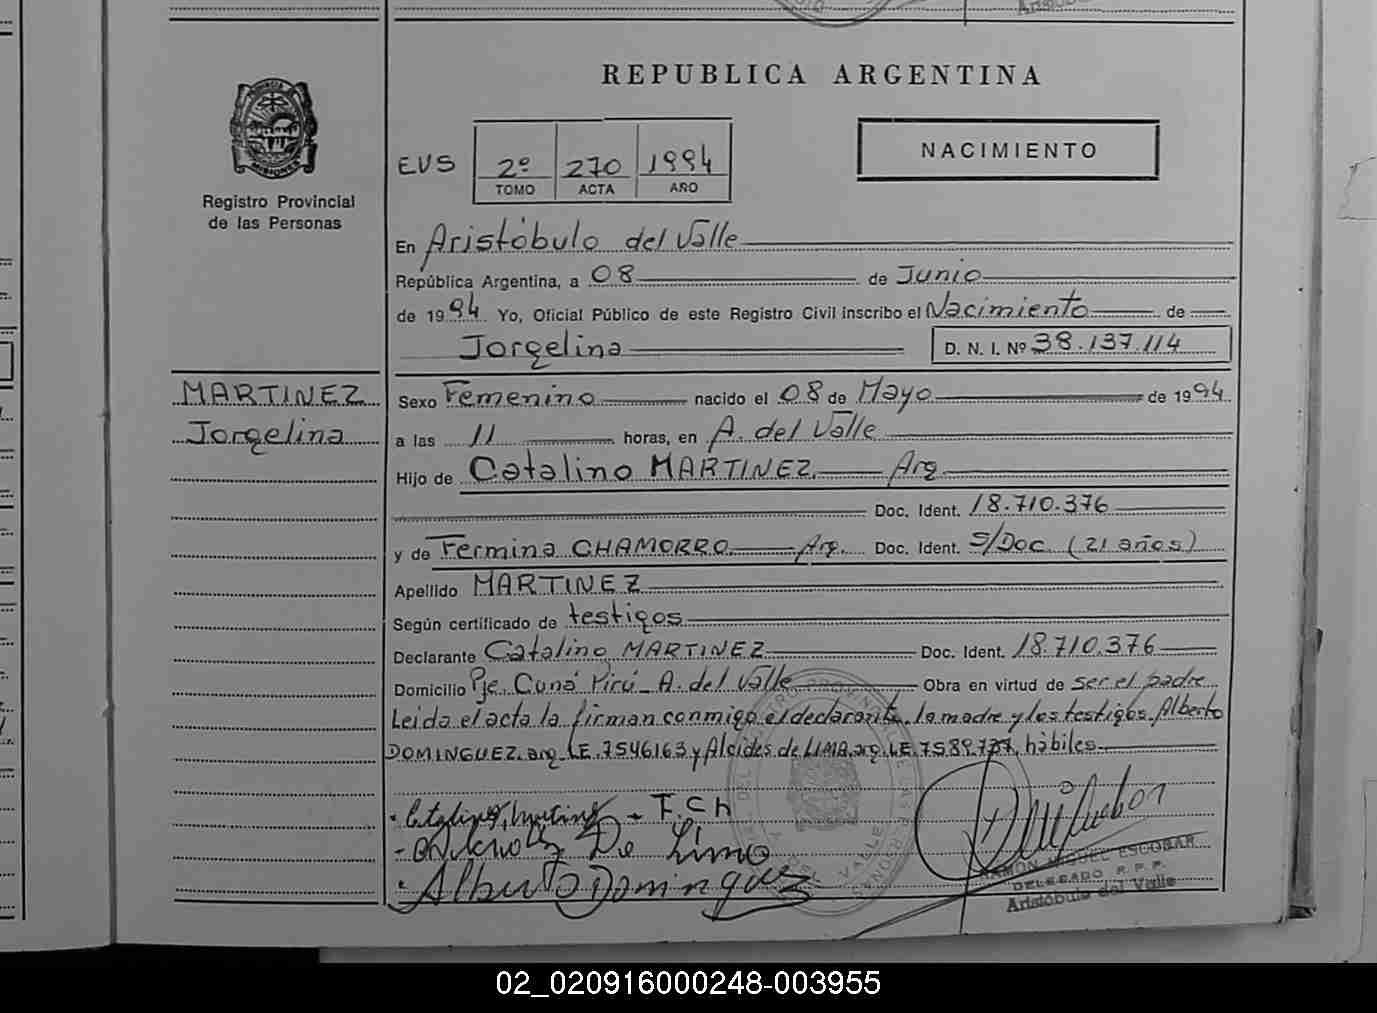 REPUBLICA ARGENTINA
NACIMIENTO
EVS 2º 270 1994
TOMO ACTA AÑO
Registro Provincial
de las Personas
En Aristóbulo del Valle
República Argentina, a 08 de Junio
de 1994 Yo, Oficial Público de este Registro Civil inscribo el Nacimiento de
Jorgelina D. N. I. Nº 38.137.114
MARTINEZ
Jorgelina
Sexo Femenino nacido el 08 de Mayo de 1994
a las 11 horas, en A. del Valle
Hijo de Catalino MARTINEZ. Arg
Doc. Ident. 18.710.376
y de Fermina CHAMORRO. Arg. Doc. Ident. S/Doc. (21 años)
Apellido MARTINEZ
Según certificado de testigos
Declarante Catalino MARTINEZ Doc. Ident. 18.710.376
Domicilio Pje. Cuná Pirú _ A. del Valle Obra en virtud de ser el padre
Leida el acta la firman conmigo el declarante, la madre y los testigos. Alberto
DOMINGUEZ. arg. LE. 7546163 y Alcides de LIMA. arg. LE. 7589.727, hábiles
F. Ch
De Lima
Alberto Dominguez
RAMON MIGUEL ESCOBAR
DELEGADO R.P.P.
Aristóbulo del Valle
02_020916000248-003955